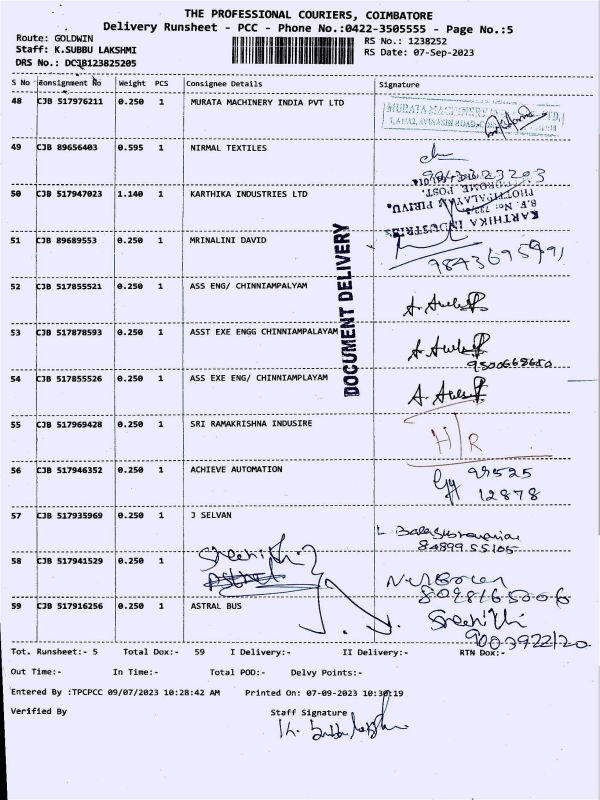 THE PROFESSIONAL COURIERS, COIMBATORE
Delivery Runsheet - PCC - Phone No.:0422-3505555 - Page No.:5
Route: GOLDWIN
RS No.: 1238252
Staff: K.SUBBU LAKSHMI
RS Date: 07-Sep-2023
DRS No.: DCJB123825205
S No Consignment No Weight PCS Consignee Details Signature
48 CJB 517976211 0.250 1 MURATA MACHINERY INDIA PVT LTD
49 CJB 89656403 0.595 1 NIRMAL TEXTILES
9843723203
50 CJB 517947023 1.140 1 KARTHIKA INDUSTRIES LTD
KARTHIKA INDUSTRIES
51 CJB 89689553 0.250 1 MRINALINI DAVID
DOCUMENT DELIVERY
52 CJB 517855521 0.250 1 ASS ENG/ CHINNIAMPALYAM
53 CJB 517878593 0.250 1 ASST EXE ENGG CHINNIAMPALAYAM
9500668650
54 CJB 517855526 0.250 1 ASS EXE ENG/ CHINNIAMPLAYAM
55 CJB 517969428 0.250 1 SRI RAMAKRISHNA INDUSIRE
H/R
56 CJB 517946352 0.250 1 ACHIEVE AUTOMATION
99525
12878
57 CJB 517935969 0.250 1 J SELVAN
84899 55105
58 CJB 517941529 0.250 1
59 CJB 517916256 0.250 1 ASTRAL BUS
Tot. Runsheet:- 5 Total Dox:- 59 I Delivery:- II Delivery:- RTN Dox:-
Out Time:- In Time:- Total POD:- Delvy Points:-
Entered By :TPCPCC 09/07/2023 10:28:42 AM Printed On: 07-09-2023 10:30:19
Verified By Staff Signature